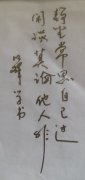 静坐常思自己过
闲谈莫论他人非